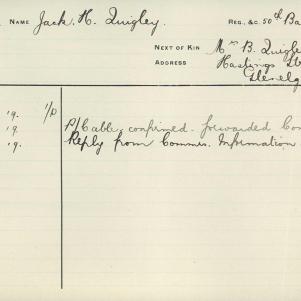 NAME Jack. H. Quigley. REG., &C. 50th Ba
NEXT OF KIN Mrs B. Quigle
ADDRESS Hastings St
Glenelg
19. 1/P
19 P/Cable, confirmed. forwarded Com
19. Reply from Commis. Information